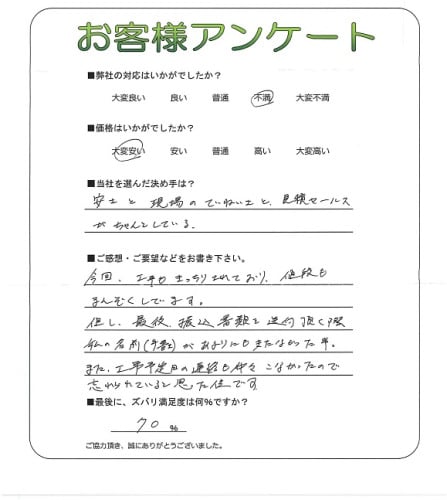 お客様アンケート
■弊社の対応はいかがでしたか?
大変良い 良い 普通 不満 大変不満
■価格はいかがでしたか?
大変安い 安い 普通 高い 大変高い
■当社を選んだ決め手は?
安さと現場のていねいさと、見積セールス
がちゃんとしている。
■ご感想・ご要望などをお書き下さい。
今回、工事もきっちりされており、値段も
まんぞくしています。
但し、最後、振込書類を送付頂く際
私の名前(予蟇)が
また、工事予定日の連絡も中々こなかったので
忘れられていると思った位です
■最後に、ズバリ満足度は何%ですか?
70 %
ご協力頂き、誠にありがとうございました。